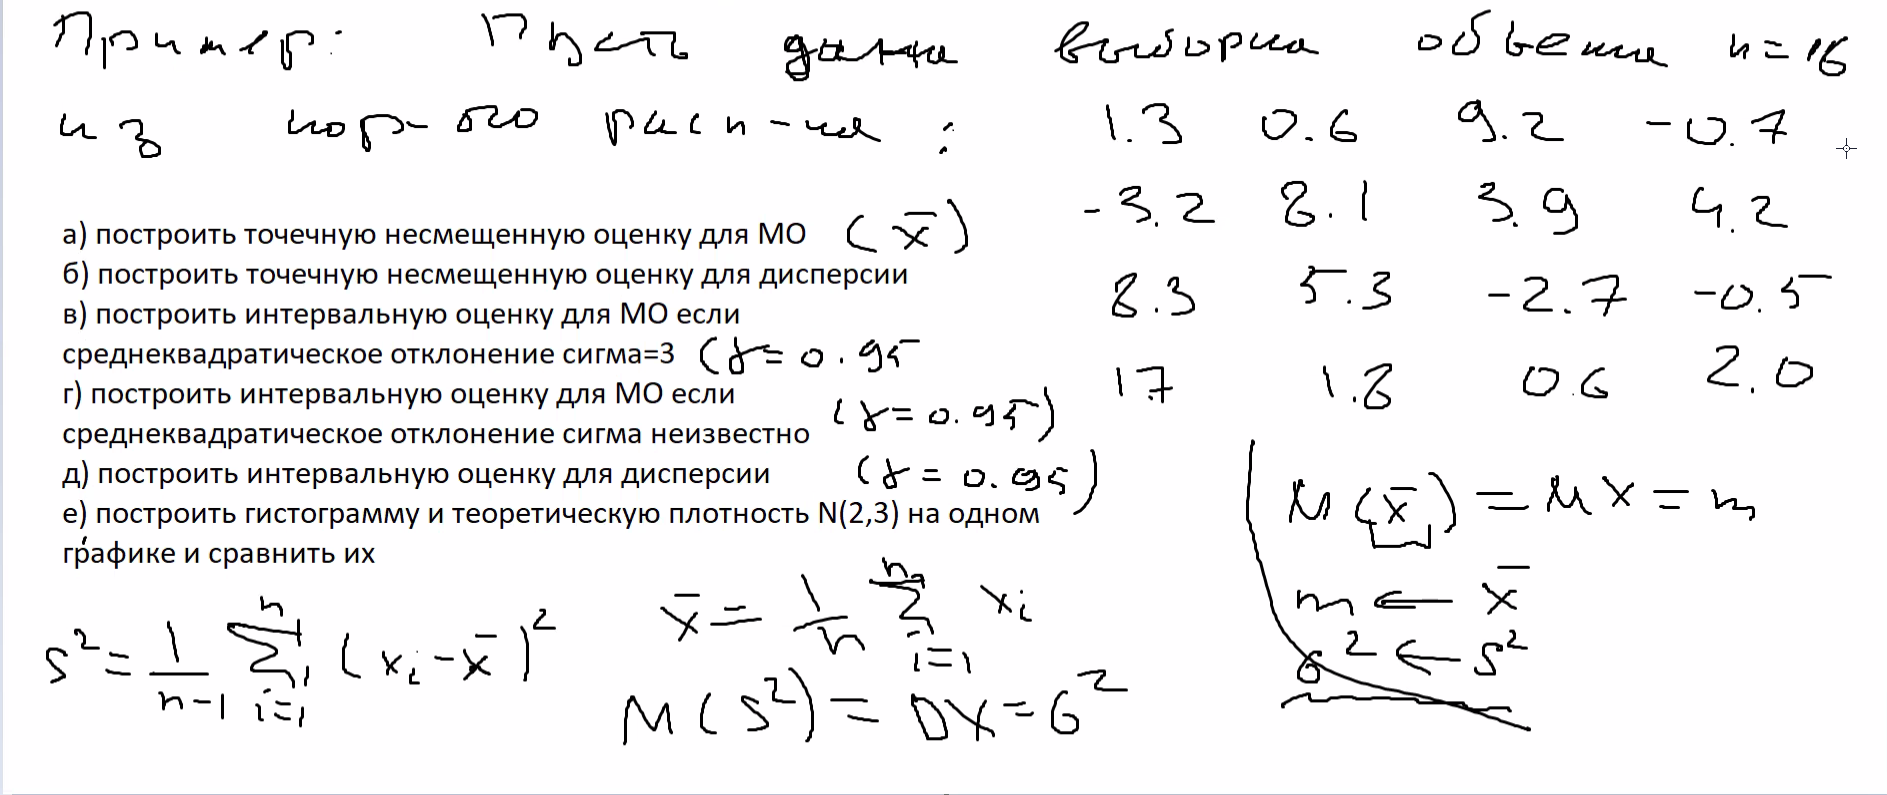 Пример: Пусть дана выборка объема n=16
из нор-ого расп-ия : 1.3 0.6 9.2 -0.7
-3.2 8.1 3.9 4.2
8.3 5.3 -2.7 -0.5
1.7 1.8 0.6 2.0
а) построить точечную несмещенную оценку для МО (x̅)
б) построить точечную несмещенную оценку для дисперсии
в) построить интервальную оценку для МО если
среднеквадратическое отклонение сигма=3 (γ=0.95
г) построить интервальную оценку для МО если
среднеквадратическое отклонение сигма неизвестно (γ=0.95)
д) построить интервальную оценку для дисперсии (γ=0.95)
е) построить гистограмму и теоретическую плотность N(2,3) на одном
графике и сравнить их
M(x̅) = MX = m
m ← x̅
σ² ← s²
x̅ = 1/n ∑_{i=1}^{n} x_i
s² = 1/(n-1) ∑_{i=1}^{n} (x_i - x̅)²
M(s²) = DX = σ²